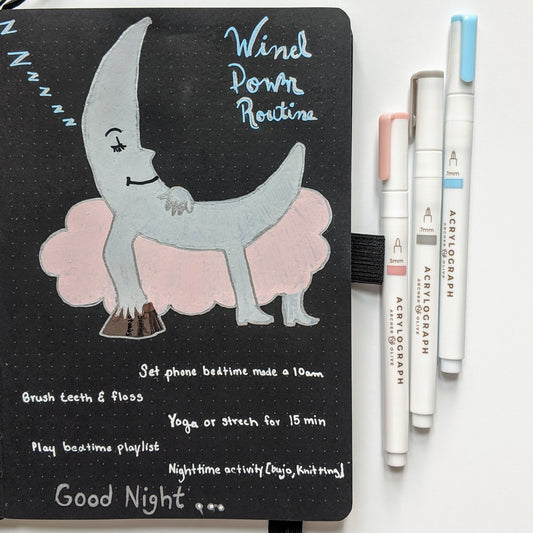 Z Z z z z z z z
Wind
Down
Routine
Set phone bedtime mode a 10am
Brush teeth & floss
Yoga or strech for 15 min
Play bedtime playlist
Nighttime activity [bujo, knitting]
Good Night ...
3mm
ACRYLOGRAPH
ARCHER & OLIVE
7mm
ACRYLOGRAPH
ARCHER & OLIVE
7mm
ACRYLOGRAPH
ARCHER & OLIVE